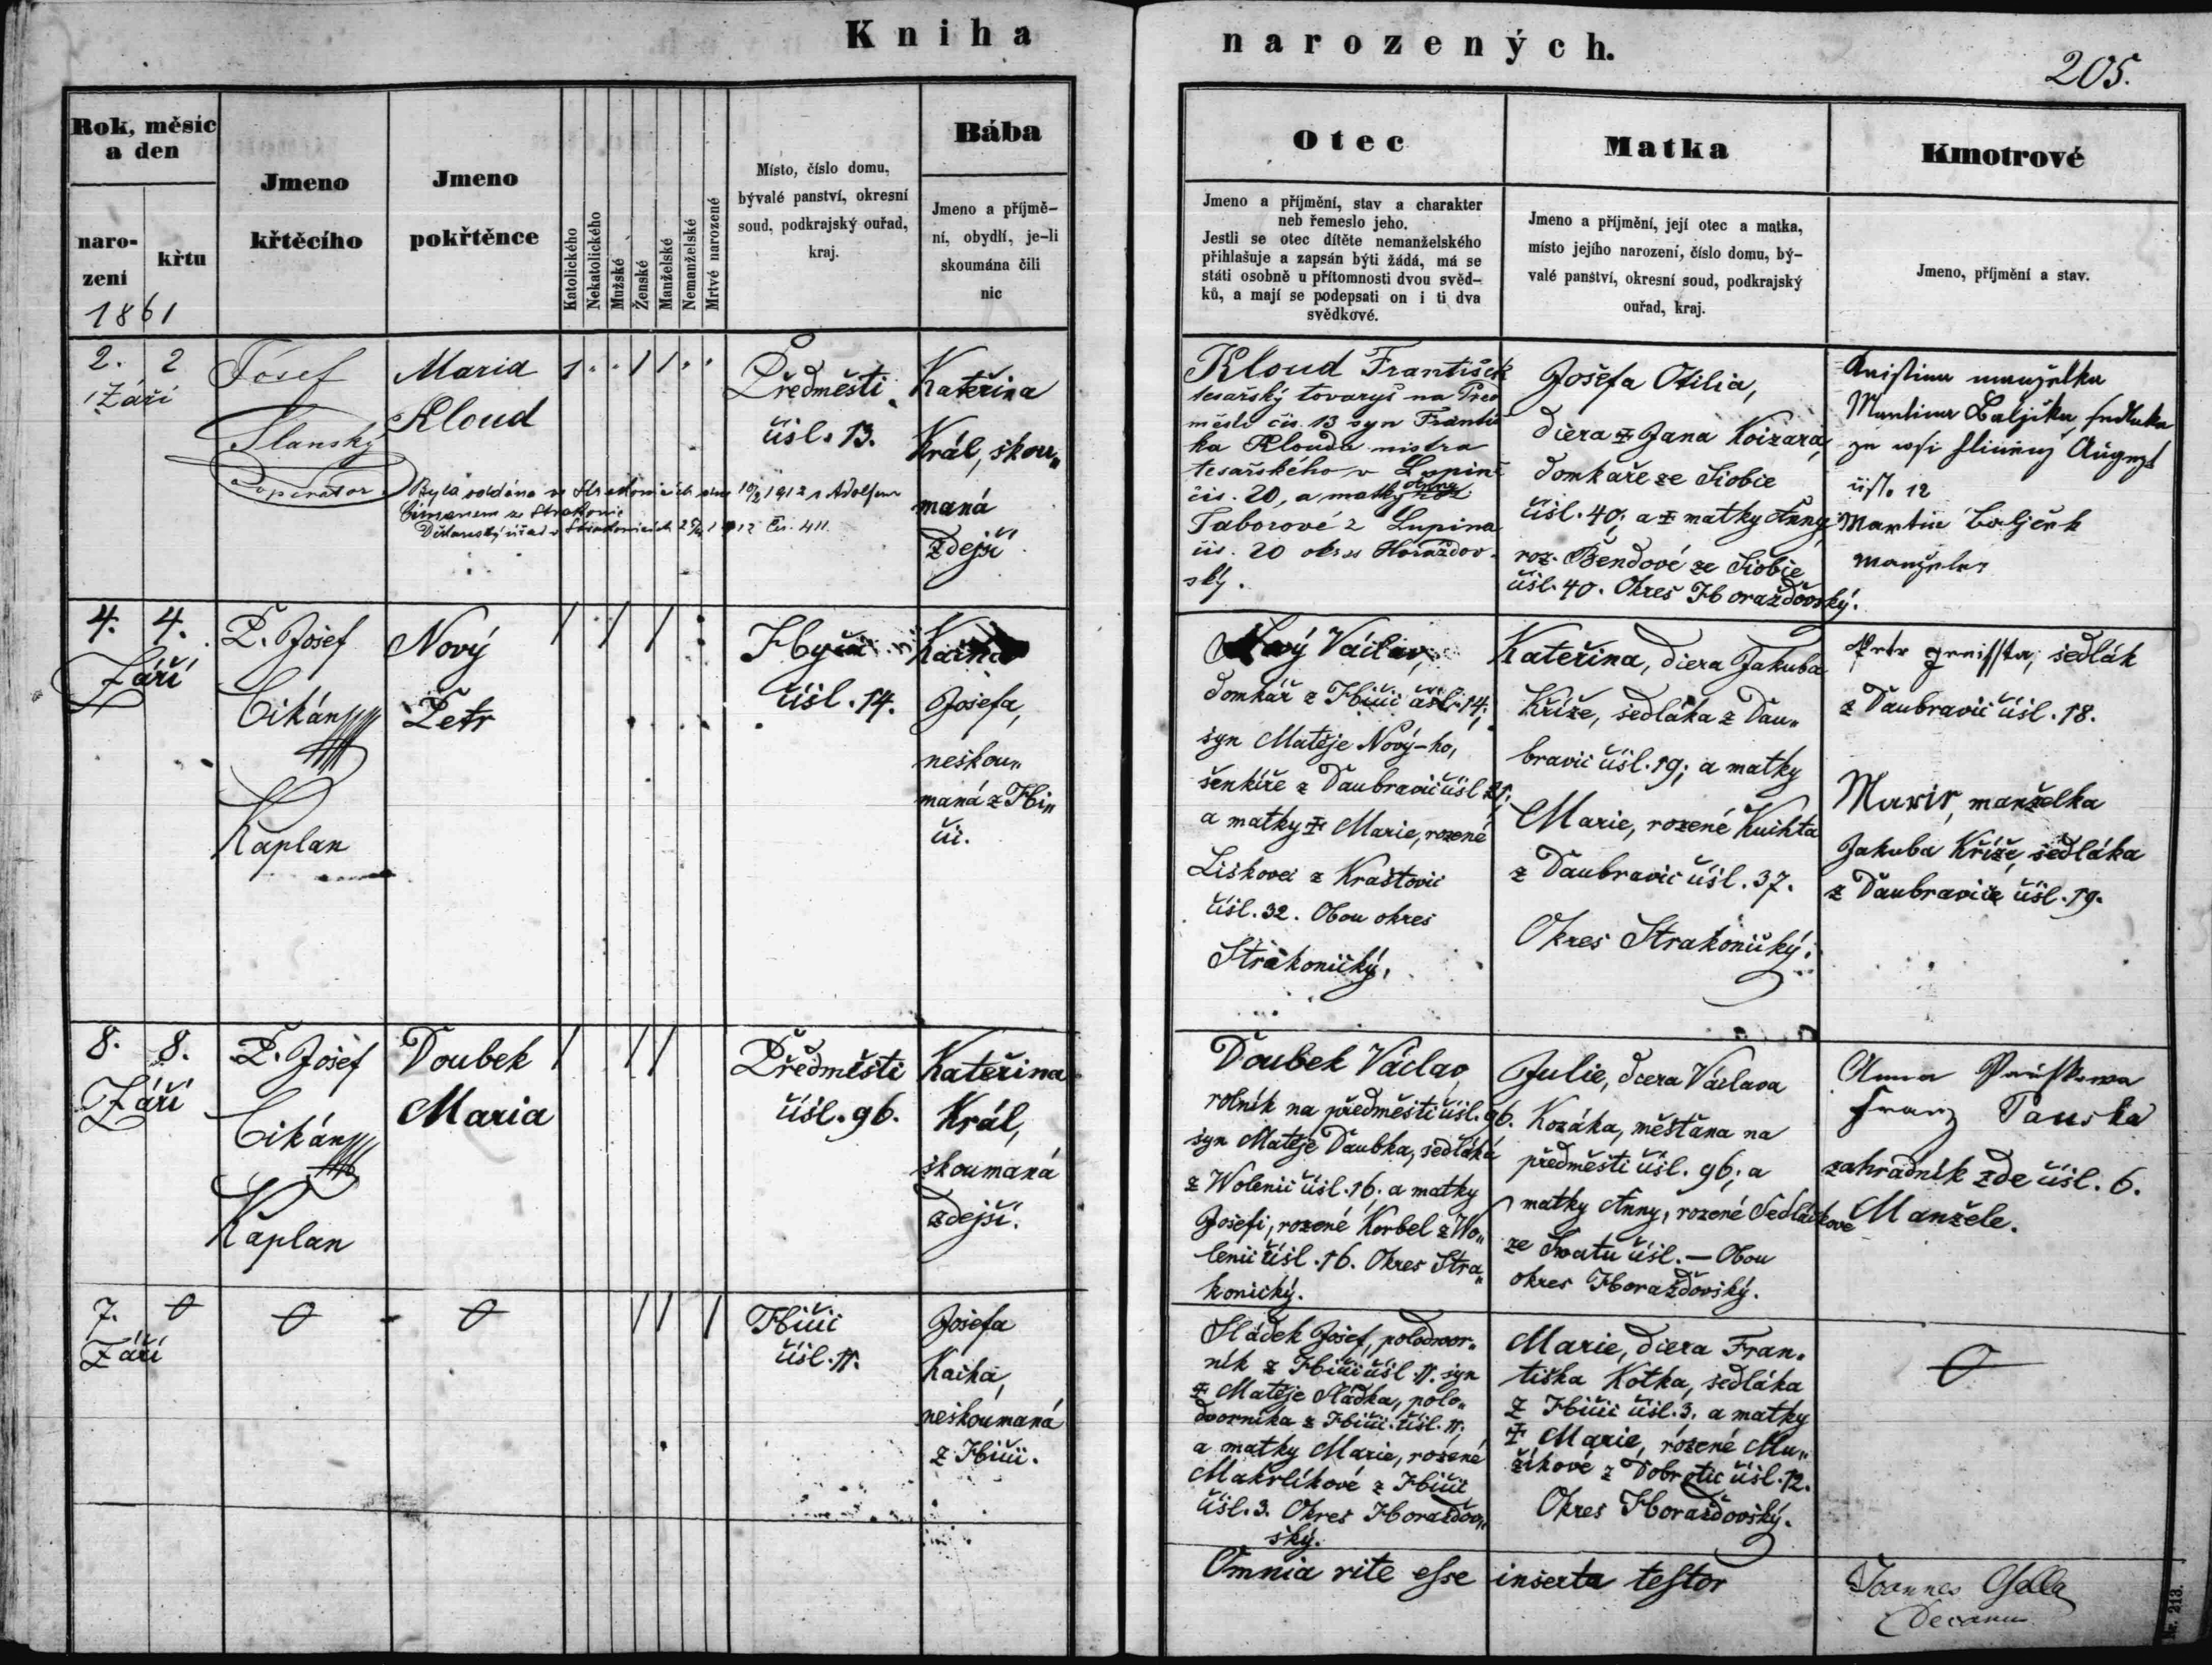 Kniha
narozených.
205.
Rok, měsíc
a den
naro-
zení
křtu
1861
Jmeno
křtěcího
Jmeno
pokřtěnce
Katolického
Nekatolického
Mužské
Ženské
Manželské
Nemanželské
Mrtvé narozené
Místo, číslo domu,
bývalé panství, okresní
soud, podkrajský ouřad,
kraj.
Bába
Jmeno a příjmě-
ní, obydlí, je-li
skoumána čili
nic
Otec
Jmeno a příjmění, stav a charakter
neb řemeslo jeho.
Jestli se otec dítěte nemanželského
přihlašuje a zapsán býti žádá, má se
státi osobně u přítomnosti dvou svěd-
ků, a mají se podepsati on i ti dva
svědkové.
Matka
Jmeno a příjmění, její otec a matka,
místo jejího narození, číslo domu, bý-
valé panství, okresní soud, podkrajský
ouřad, kraj.
Kmotrové
Jmeno, příjmění a stav.
2. 2
Září
Josef
Slanský
Cooperator
Maria
Kloud
1 . . 1 1 . .
Předměstí
čísl. 13.
Kateřina
Král, skou„
maná
zdejší
Byla oddána ve Strakonicích dne 10/2 1912 s Adolfem
ze Strakonic
Děkanský úřad v Strakonicích 1912 čís. 411.
Kloud František
tesařský tovaryš na Před
městí čís. 13 syn Františ
ka Klouda mistra
tesařského v
čís. 20, a matky Anny
Taborové z Lupina
čís. 20 okres Horažďov-
ský.
Josefa Otilia,
dcera Jana
domkaře ze
čísl. 40; a matky Anny
roz. Bendové ze
čísl. 40. Okres Horažďovský.
manželka
Martina
August
čísl. 12
Martin
manžel
4. 4.
Září
P. Josef
Cikán
Kaplan
Nový
Petr
/ / /
čísl. 14.
Josefa,
neskou„
maná z Hbi„
čí.
Nový Václav,
domkář z Hbičí čísl. 14.
syn Matěje Nový-ho,
šenkíře z Daubravic čísl. 21.
a matky Marie, rozené
Liškovei z Kraštovic
čísl. 32. Obou okres
Strakonický.
Kateřina, dcera Jakuba
Kříže, sedláka z Dau„
bravic čísl. 19; a matky
Marie, rozené Kuihta
z Daubravic čísl. 37.
Okres Strakonický.
Petr sedlák
z Daubravic čísl. 18.
Marie, manželka
Jakuba Kříže, sedláka
z Daubravic čísl. 19.
8. 8.
Září
P. Josef
Cikán
Kaplan
Doubek
Maria
/ / /
Předměstí
čísl. 96.
Kateřina
Král,
skoumaná
zdejší.
Doubek Václav
rolník na předměstí čísl. 96.
syn Matěje Daubka, sedláka
z Wolenic čísl. 16; a matky
Josefi, rozené Korbel z Wo„
lenic čísl. 16. Okres Stra„
konický.
Julie, dcera Václava
Kozáka, měšťana na
předměstí čísl. 96; a
matky Anny, rozené Sedláčkove
ze Swatu čísl. — Obou
okres Horažďovský.
Anna
Franz Pauska
zahradník zde čísl. 6.
Manžele.
7. 0
Září
0
0
/ / /
Hbičí
čísl. 11.
Josefa
Kaiha,
neskoumaná
z Hbičí.
Sládek Josef, polodvor„
ník z Hbičí čísl. 11. syn
Matěje Sládka, polo„
dvorníka z Hbičí čísl. 11;
a matky Marie, rozené
Makrlíkové z Hbičí
čísl. 3. Okres Horažďov„
ský.
Marie, dcera Fran„
tiška Kotka, sedláka
z Hbičí čísl. 3. a matky
Marie, rozené Mu„
žíkové z Dobrotic čísl. 12.
Okres Horažďovský.
0
Omnia rite esse inserta testor
Joannes Galla
Decanus
Nr. 213.